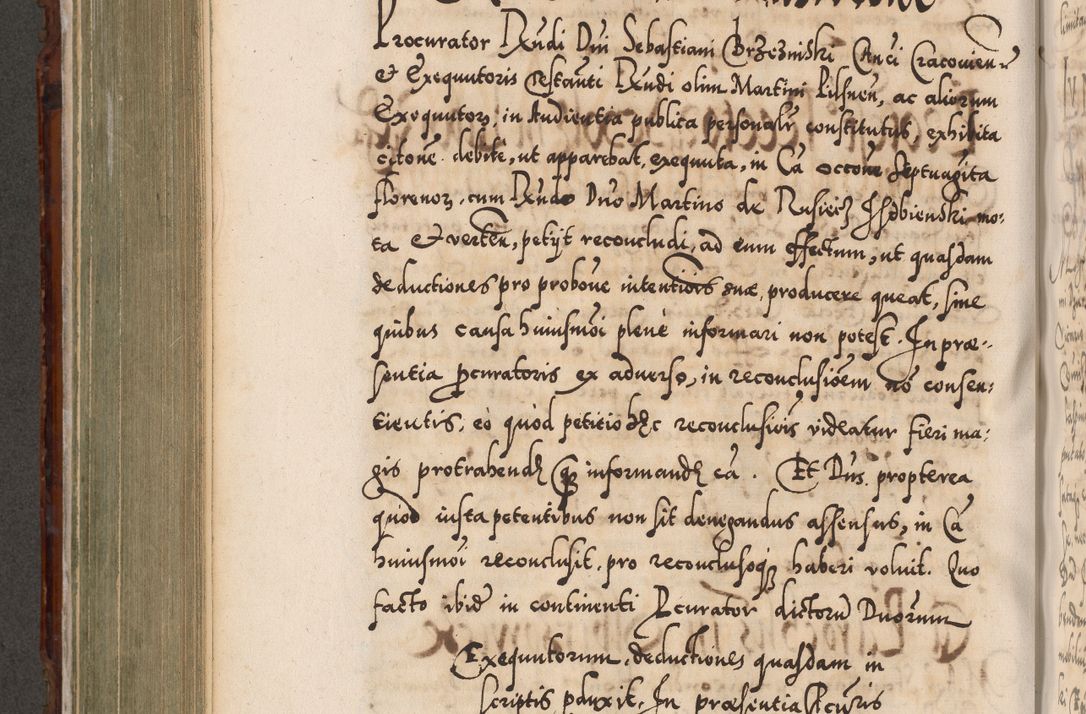 Procurator Rndi Dni Sebastiani Brzezinski Cnci Cracovien
et Exequutoris testāuti Rndi olim Martini Pilsnen, ac aliorum
Exequutor, in Audientia publica personalr constitutus, exhibita
citone debite, ut apparebat, exequuta, in Ca occone Septuagita
florenor, cum Rndo Dno Martino de Rusiecz Isdbienski mo-
ta et verten, petijt reconcludi, ad eum effectum, ut quasdam
deductiones pro probone intentionis suæ, producere queat, sine
quibus causa huiusmoi plenè informari non potest. In præ-
sentia Pcuratoris ex adverso, in reconclusioem nō consen-
tientis, eò quòd petitio hęc reconclusiois videatur fieri ma-
gis protrahendę q informandę cā. Et Dns. propterea
quod iusta petentibus non sit denegandus assensus, in Ca
huiusmoi reconclusit, pro reconclusoq haberi voluit. Quo
facto ibid in continenti Pcurator dictorū Dnorum
Exequutorum, deductiones quasdam in
scriptis pduxit. In præsentia